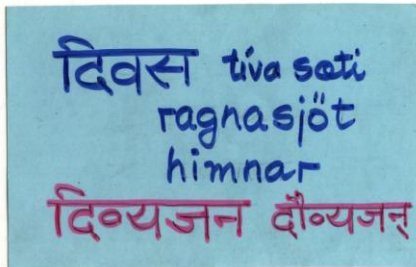 दिवस tíva sæti
ragnasjöt
himnar
दिव्यजन दौव्यजन्